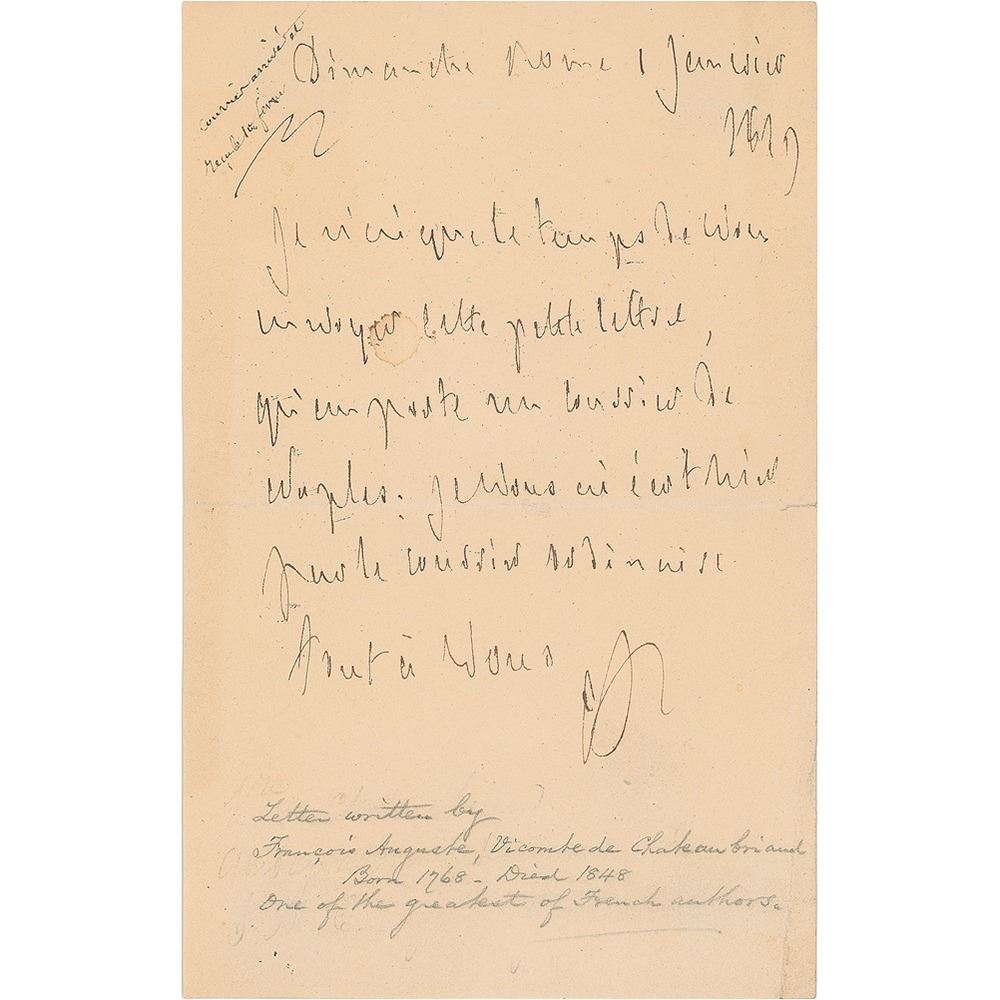 courrier arrivé et
reçu le 10 février
Dimanche Rome 1 fevrier
1829
Je n'ai que le temps de vous
envoyer cette petite lettre,
qu'emporte un courrier de
Naples. Je vous ai écrit hier
par le courrier ordinaire.
Tout à vous
Ch
Letter written by
François Auguste, Vicomte de Chateaubriand
Born 1768 - Died 1848
One of the greatest of French authors.